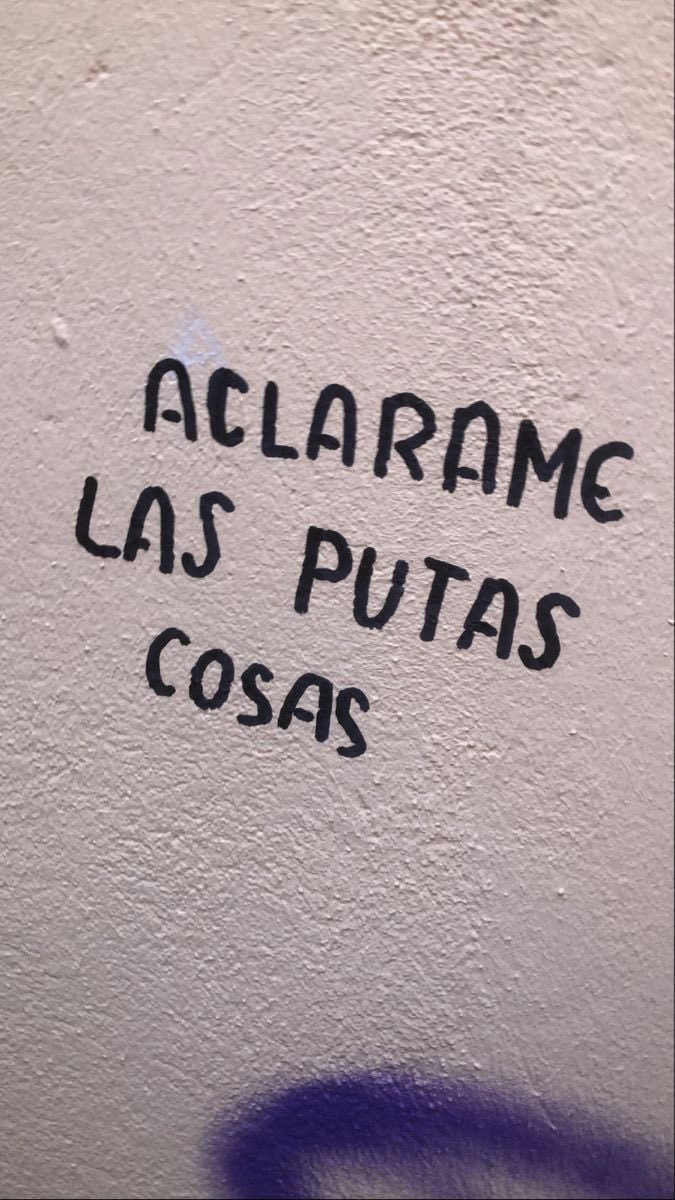 ACLARAME
LAS PUTAS
COSAS